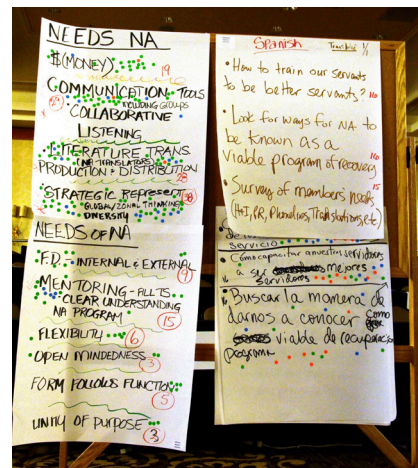 NEEDS NA
$(MONEY)
19
COMMUNICATION - TOOLS
INCLUDING GROUPS
COLLABORATIVE
LISTENING
LITERATURE TRANS
(NA TRANSLATORS)
PRODUCTION + DISTRIBUTION
28
STRATEGIC REPRESENT
GLOBAL/ZONAL THINKING
DIVERSITY
NEEDS OF NA
F.D. - INTERNAL & EXTERNAL
9
MENTORING - ALL TS
CLEAR UNDERSTANDING
NA PROGRAM
15
FLEXIBILITY
6
OPEN MINDEDNESS
3
FORM FOLLOWS FUNCTION
5
UNITY OF PURPOSE
3
Spanish
Translated 1/1
• How to train our servants
to be better servants? 16
• Look for ways for NA to
be known as a
viable program of recovery
16
• Survey of members needs
15
(H&I, PR, Phonelines, Translations, etc)
servicio
• Cómo capacitar a nuestros servidores
a ser mejores
servidores
• Buscar la manera de
darnos a conocer como
viable de recuperación
programa